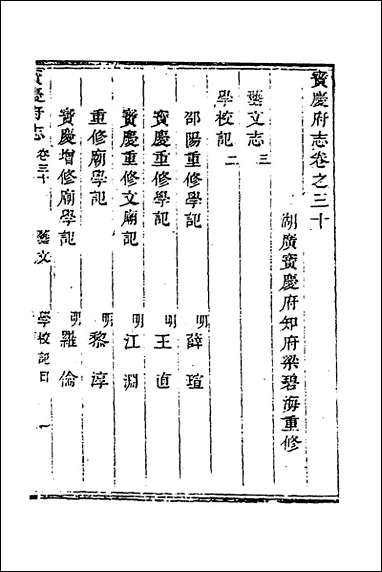 寳慶府志卷之三十
湖廣寳慶府知府梁碧海重修
藝文志 三
學校記 二
邵陽重修學記 明 薛瑄
寳慶重修學記 明 王直
寳慶重修文廟記 明 江淵
重修廟學記 明 黎淳
寳慶增修廟學記 明 羅倫
寳慶府志 卷三十 藝文 學校記目 一